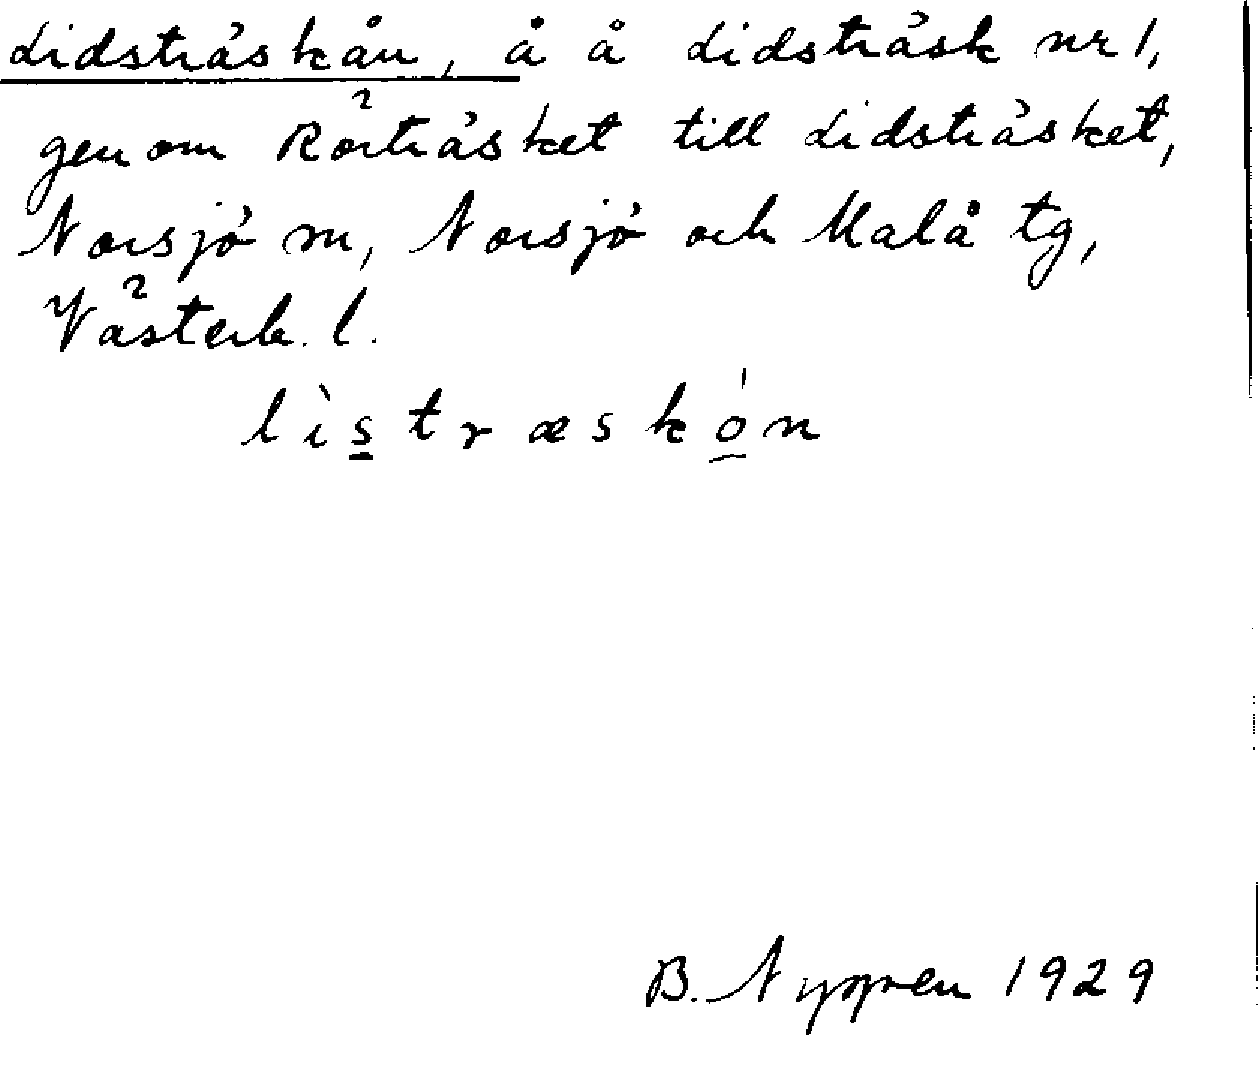 Lidsträskån, å å Lidsträsk nr 1,
genom Rörträsket till Lidsträsket,
Norsjö sn, Norsjö och Malå tg,
Västerb. l.
lìstræskón
B. 1929